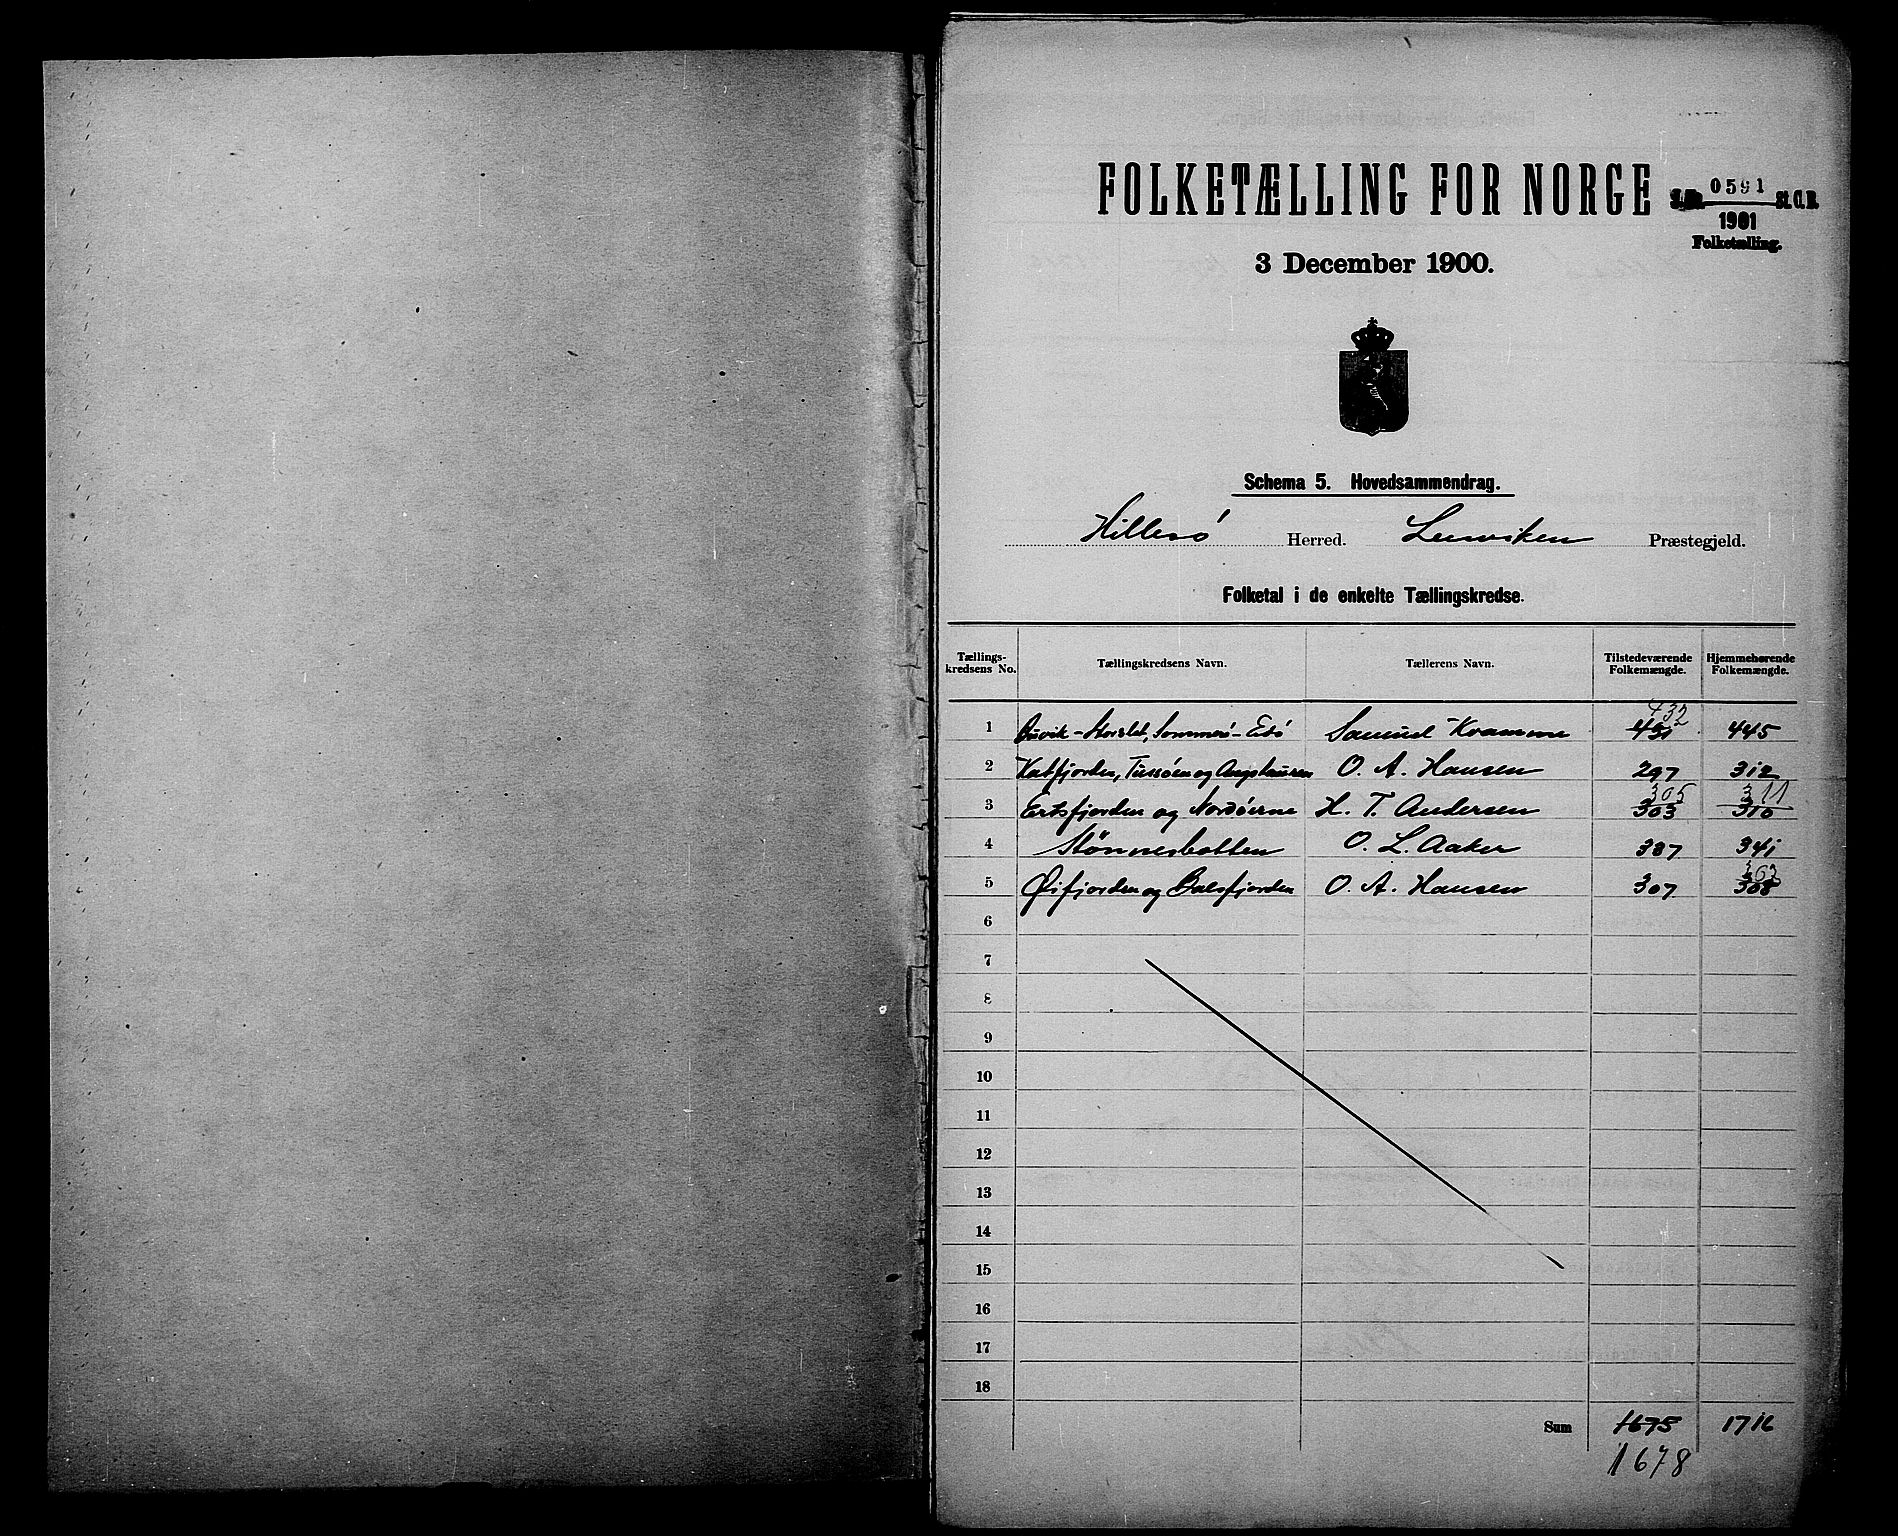 FOLKETÆLLING FOR NORGE
S.No. 0591 St. C. B.
1901
Folketælling.
3 December 1900.
Schema 5. Hovedsammendrag.
Hillesö Herred. Lenviken Præstegjeld.
Folketal i de enkelte Tællingskredse.
Tællings-kredsens No. Tællingskredsens Navn. Tællerens Navn. Tilstedeværende Folkemængde. Hjemmehørende Folkemængde.
432
1 Buvik-Storslet, Sommerö-Edö Samuel Kramme 431 445
2 Katfjorden, Tussöen og Angstauren O. A. Hansen 297 312
305 311
3 Ersfjorden og Nordöerne H. T. Andersen 303 310
4 Stönnesbotten O. L. Aaker 337 341
5 Øifjorden og Balsfjorden O. A. Hansen 307 308
6
7
8
9
10
11
12
13
14
15
16
17
18
Sum 1675 1716
1678